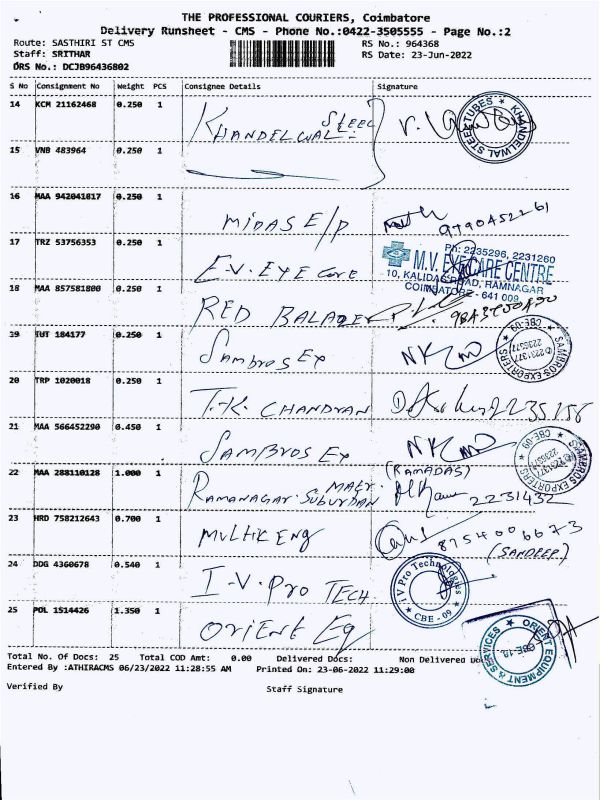 THE PROFESSIONAL COURIERS, Coimbatore
Delivery Runsheet - CMS - Phone No.:0422-3505555 - Page No.:2
Route: SASTHIRI ST CMS
RS No.: 964368
Staff: SRITHAR
RS Date: 23-Jun-2022
DRS No.: DCJB96436802
S No Consignment No Weight PCS Consignee Details Signature
14 KCM 21162468 0.250 1 KHANDELWAL STEEL
KHANDELWAL STEEL TUBES
15 VNB 483964 0.250 1
16 MAA 942041817 0.250 1 MIDAS E/P 9790452261
17 TRZ 53756353 0.250 1 E.V. EYE Care
Ph: 2235296, 2231260
M.V. EYE CARE CENTRE
10, KALIDAS ROAD, RAMNAGAR
COIMBATORE - 641 009
18 MAA 857581800 0.250 1 RED
19 TUT 184177 0.250 1 Sambros Ex
SAMBROS EXPORTERS CBE-09
20 TRP 1020018 0.250 1 T.K. CHANDRAN 2235158
21 MAA 566452290 0.450 1 SAMBROS Ex
SAMBROS EXPORTERS CBE-09
(RAMADAS)
22 MAA 288110128 1.000 1 RAMANAGAR SUBURBAN 2231432
23 HRD 758212643 0.700 1 MULTIK ENG 8754006673
(SANDEEP)
24 DDG 4360678 0.540 1 I-V. Pro TECH.
i V Pro Technologies CBE - 09
25 POL 1514426 1.350 1 ORIENT Eq
ORIENT EQUIPMENT & SERVICES
Total No. Of Docs: 25 Total COD Amt: 0.00 Delivered Docs: Non Delivered
Entered By :ATHIRACMS 06/23/2022 11:28:55 AM Printed On: 23-06-2022 11:29:00
Verified By
Staff Signature